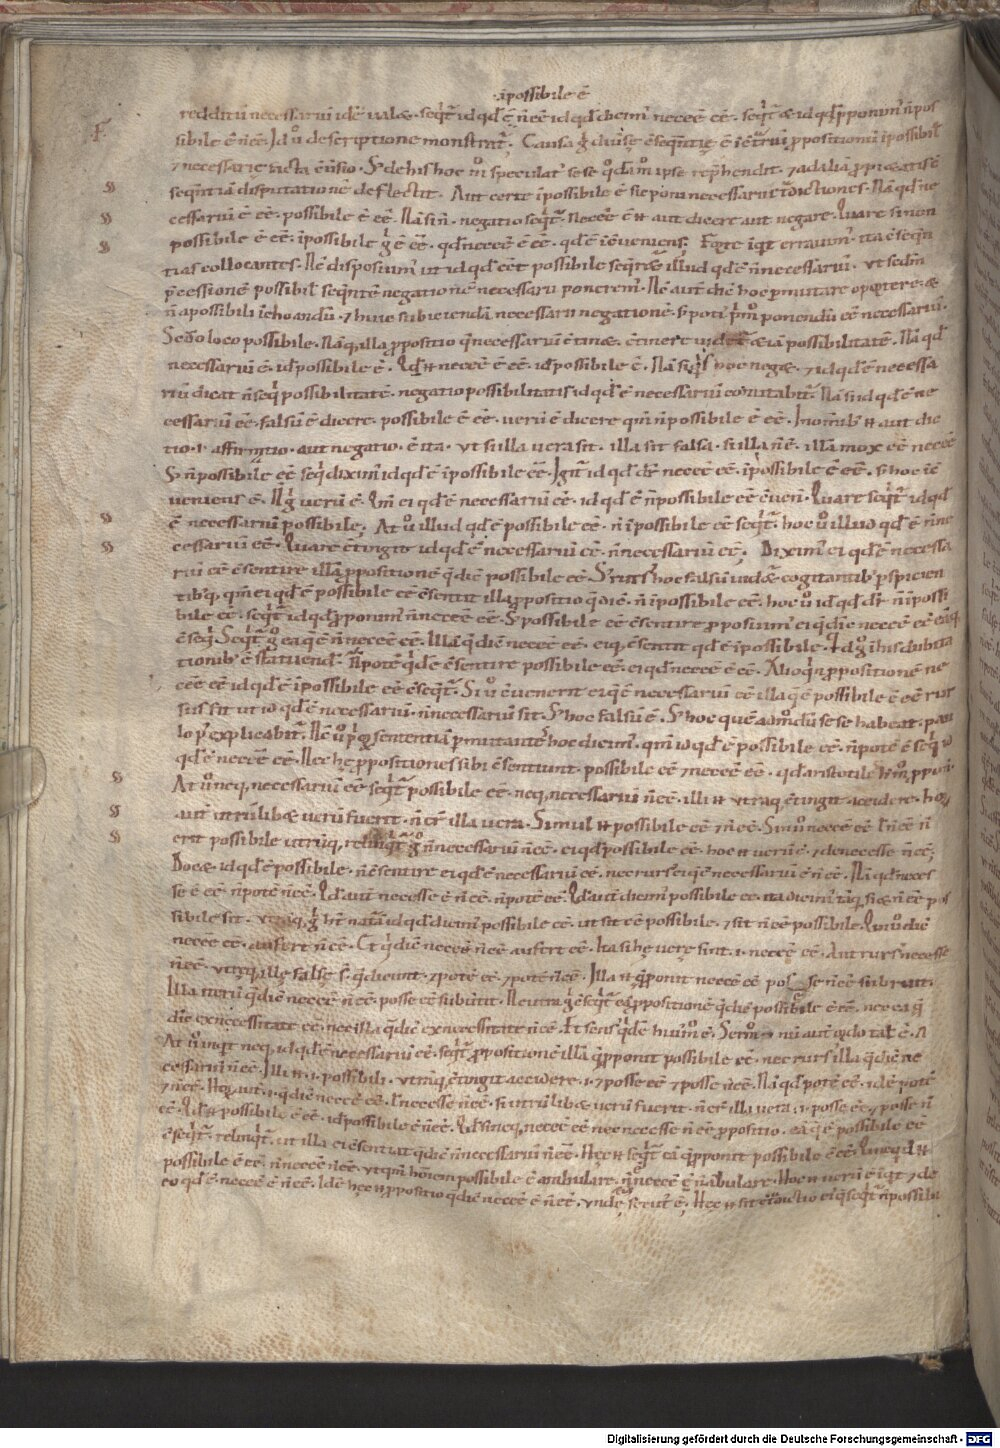 ·īpossibile ē
redditū necessarii idē valæ· seqt̄ id qd̄ ē n̄ ncē id qd̄ dicim' necēē ēē· seqt̄ æ id qd̄ p̱ponim' n̄ pos
sibile ē n̄ ēē· Id ū descriptione monstrat̄· Causa g̊ diuse
F
7 necessarię facta · S; de his hoc m̊ speculat' se se ipse rep̄hendit· 7 ad alia
sequentiā disputationē deflectit· Aut certe īpossibile ē sic poni necessarii c̄dictiones· Nā qd̄ ne
cessariū ē ēē· possibile ē ēē· Nā si n̄· negatio seqt̄· Necēē ē aut dicere aut negare· Quare si non
possibile ē ēē· īpossibile g̊ ē ēē· qd̄ necēē ē ēē· qd̄ ē icueniens; Forte iqt errauim' ita seqn̄
tias collocantes· Nē disposuim' ut id qd̄ ēēt possibile seqret̄ illud qd̄ ē n̄ necessariū· ut sedm̄
p̄cessionē possibil' seqntē negationē necessarii ponerem'· Nē aut̄ hoc pmutare oportere· æ
n̄ a possibili īchoandū· 7 huic subiciendā necessarii negationē· s; poti' p̄m̊ ponendū ēē necessariū·
Sc̄do loco possibile· Nāq; illa p̱positio q̄ necessariū ētinæ· ētinere uidet̄ æiā possibilitatē· Nā qd̄
necessariū ē ēē· id possibile ē· Qd̄ necēē ē ēē· id possibile ē· Nā siqs hoc negæ· 7 id qd̄ ē necessa
riū dicat n̄ seqi possibilitatē· negatio possibilitatis id qd̄ ē necessariū comitabit̄· Nā si id qd̄ ē ne
cessariū ēē· falsū ē dicere· possibile ē ēē· uerū ē dicere qm̄ n̄ possibile ē ēē· In omib' aut dic
tio· i· affirmtio· aut negatio· ē ita· ut si illa uera sit· illa sit falsa· si illa n̄ ē· illā mox ēē necēē
S; n̄ possibile ēē seqi diximus id qd̄ ē īpossibile ēē· Igit̄ id qd̄ dr̄ necēē ēē· īpossibile ē ēē· s; hoc īc
ueniens ē· N̄ g̊ uerū ē· Qm̄ ei qd̄ ē necessariū ēē· id qd̄ ē n̄ possibile ēē c̄uen̄· Quare seqt̄ id qd̄
ē necessariū possibile; At ū illud qd̄ ē possibile ēē· n̄ īpossibile ēē seqt̄· hoc ū illud qd̄ ē n̄ ne
cessariū ēē· Quare c̄tingit id qd̄ ē necessariū ēē· n̄ necessariū ēē; Diximus ei qd̄ ē necessa
riū ēē c̄sentire illā p̱positionē q̄ dic̄ possibile ēē· S; rurs' hoc falsū uidæ cogitantib' pspicien
tib'q; qm̄ ei qd̄ ē possibile ēē c̄sentit illa p̱positio q̄ dic̄· n̄ īpossibile ēē· hoc ū id qd̄ dr̄ n̄ īpossi
bile ēē· seqt̄ id qd̄ p̱ponim' n̄ necēē ēē· S; possibile ēē c̄sentire p̱posuim' ei q̄ dic̄ necēē ēē
c̄seqi· Seqt̄ g̊ ea q̄ ē n̄ necēē ēē· Illā q̄ dic̄ necēē ēē· eiq; c̄sentit qd̄ ē īpossibile· Id g̊ ī his dubita
tionib' ē statuend'· n̄ potē q̄dē c̄sentire possibile ēē· ei qd̄ necēē ē ēē· Alioqin p̱positionē ne
cēē ēē id qd̄ ē īpossibile ēē c̄seqt̄· Si ū c̄uenerit ei q̄ ē necessariū ēē illa q̄ ē possibile ē ēē rur
sus fit ut id qd̄ ē necessariū· n̄ necessariū sit· S; hoc falsū ē· S; hoc quē admodū sese habeat· pau
lo p' explicabit̄· Nē ū sententiā pmutantē hoc dicim'· qm̄ id qd̄ ē possibile ēē· n̄ potē ē seqi id
qd̄ ē necēē ēē· Nec hę p̱positiones sibi c̄sentiunt· possibile ēē 7 necēē ēē· qd̄ aristotiles
At ū neq; necessariū ēē seqt̄ possibile ēē· neq; necessariū n̄ ēē· illi utraq; c̄tingit accidere· ho
aut̄ utrū libæ uerū fuerit· n̄ er̄ illa uera· Simul possibile ēē 7 n̄ ēē· Si necēē ēē l' n̄ ēē n̄
erit possibile utrūq; relinqt̄ g̊ n̄ necessariū n̄ ēē· ei qd̄ possibile ēē· hoc uerū ē· 7 de necesse n̄ ēē;
Docæ id qd̄ ē possibile· n̄ c̄sentire ei qd̄ ē necessariū ēē· nec rurs' ei q̄ ē necessariū ē n̄ ēē· Nā qd̄ neces
se ē ēē· n̄ potē n̄ ēē· Qd̄ aut̄ necesse ē n̄ ēē· n̄ potē ēē· Qd̄ aut̄ dicim' possibile ēē· ita dicim' tāq; si æ n̄ ēē pos
sibile sit· utrāq; g̊ h̄t naturā id qd̄ dicim' possibile ēē· ut sit ēē possibile· 7 sit n̄ ēē possibile· Qui ū dic̄
necēē ēē· aufert n̄ ēē· Et q̄ dic̄ necēē n̄ ēē aufert ēē· Ita si hę uerę sint· i· necēē ēē· Aut rurs' necesse
n̄ ēē· utręq; illę falsę s̄· q̄ dicunt· 7 potē ēē· 7 potē n̄ ēē· Illa q̄ ponit necēē ēē posse n̄ ēē subruit·
Illa uerū q̄ dic̄ necēē n̄ ēē· posse ēē subuertit· Neutra g̊ seqt̄ eā p̱positionē q̄ dic̄ possibile ē ēē· nec ea q̄
dic̄ ex necessitate ēē· nec ista q̄ dic̄ ex necessitate n̄ ēē· Et sensus q̄dē huim' ē· Sermo nū aut̄ q̊do tal' ē· A
At ū inqt neq; id qd̄ ē necessariū ēē· seqt̄ p̱positionē illā q̄ p̱ponit possibile ēē· nec rurs' illa q̄ dic̄ ne
cessariū n̄ ēē· Illi i· possibili· utrūq; c̄tingit accidere· i· 7 posse ēē 7 posse n̄ ēē· Nā qd̄ potē ēē· idē potē
7 n̄ ēē· Hoꝝ aut̄· i· q̄ dic̄ necēē ēē· l' necesse n̄ ēē· si utrū libæ uerū fuerit· n̄ er̄ illa uera· i· posse ēē· 7 posse n̄
ēē· Qd̄ possibile ē ēē· id possibile ē n̄ ēē· Qd̄ si neq; necēē ēē nec necesse n̄ ēē p̱positio· eā q̄ ē possibile ēē
c̄seqt̄· relinqt̄· ut illa ei c̄sentiat q̄ dic̄ n̄ necessariū n̄ ēē· Hęc seqt̄ eā q̄ p̱ponit possibile ē ēē· Quicqd
possibile ē ēē· n̄ necēē n̄ ēē· ut qm̄ hoīem possibile ē ambulare· n̄ necēē ē n̄ ābulare· Hoc uerū ē iqt 7 de
eo qd̄ ē necēē ē n̄ ēē· Idē hęc p̱positio q̄ dic̄ necēē ē n̄ ēē· Hęc fit c̄dictio ei q̄ seqt̄ n̄ possibi
Digitalisierung gefördert durch die Deutsche Forschungsgemeinschaft - DFG